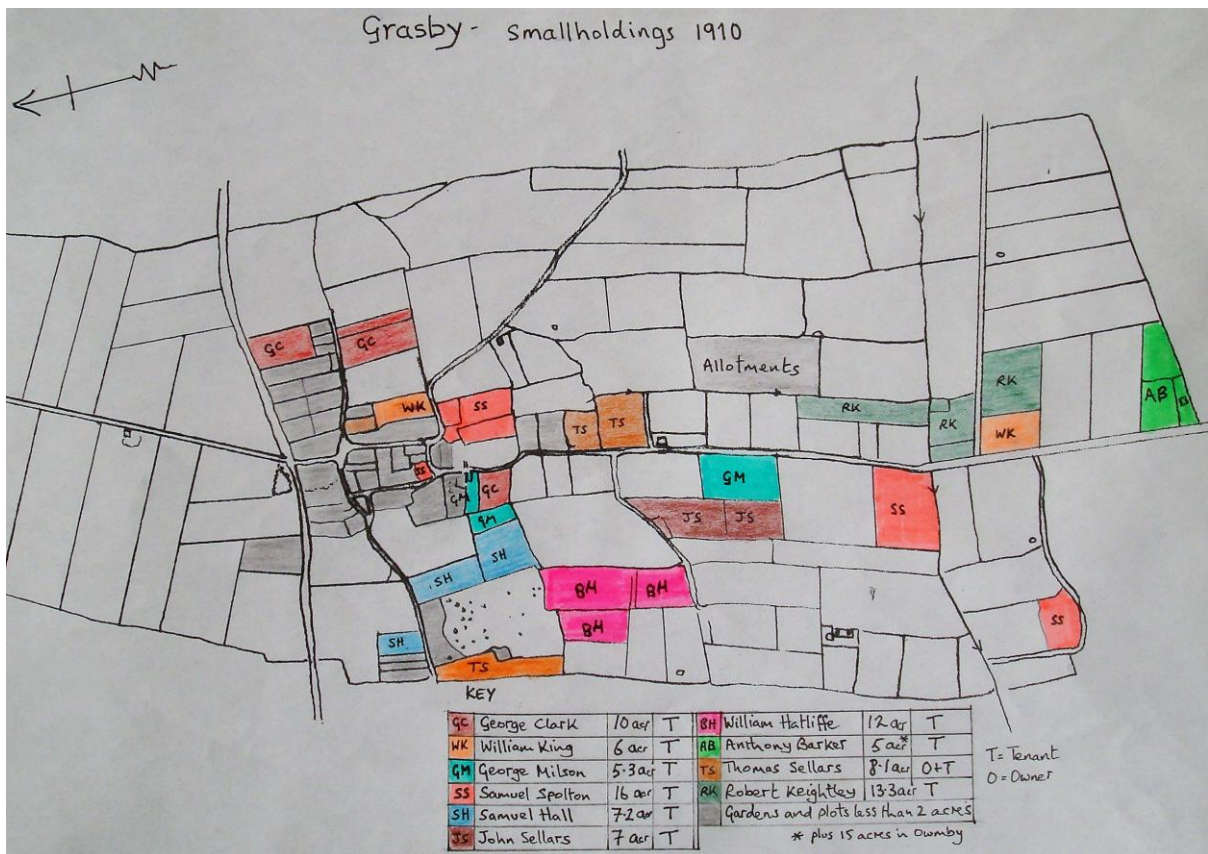 Grasby - Smallholdings 1910
GC
GC
Allotments
RK
WK
SS
AB
RK
TS
TS
RK
WK
SS
GM
GC
GM
SS
GM
JS
JS
SH
SH
BH
BH
BH
SS
SH
TS
KEY
GC George Clark 10 acr T
WK William King 6 acr T
GM George Milson 5.3 acr T
SS Samuel Spolton 16 acr T
SH Samuel Hall 7.2 acr T
JS John Sellars 7 acr T
BH William Hatliffe 12 acr T
AB Anthony Barker 5 acr* T
TS Thomas Sellars 8.1 acr O+T
RK Robert Keightley 13.3 acr T
Gardens and plots less than 2 acres
* plus 15 acres in Owmby
T = Tenant
O = Owner